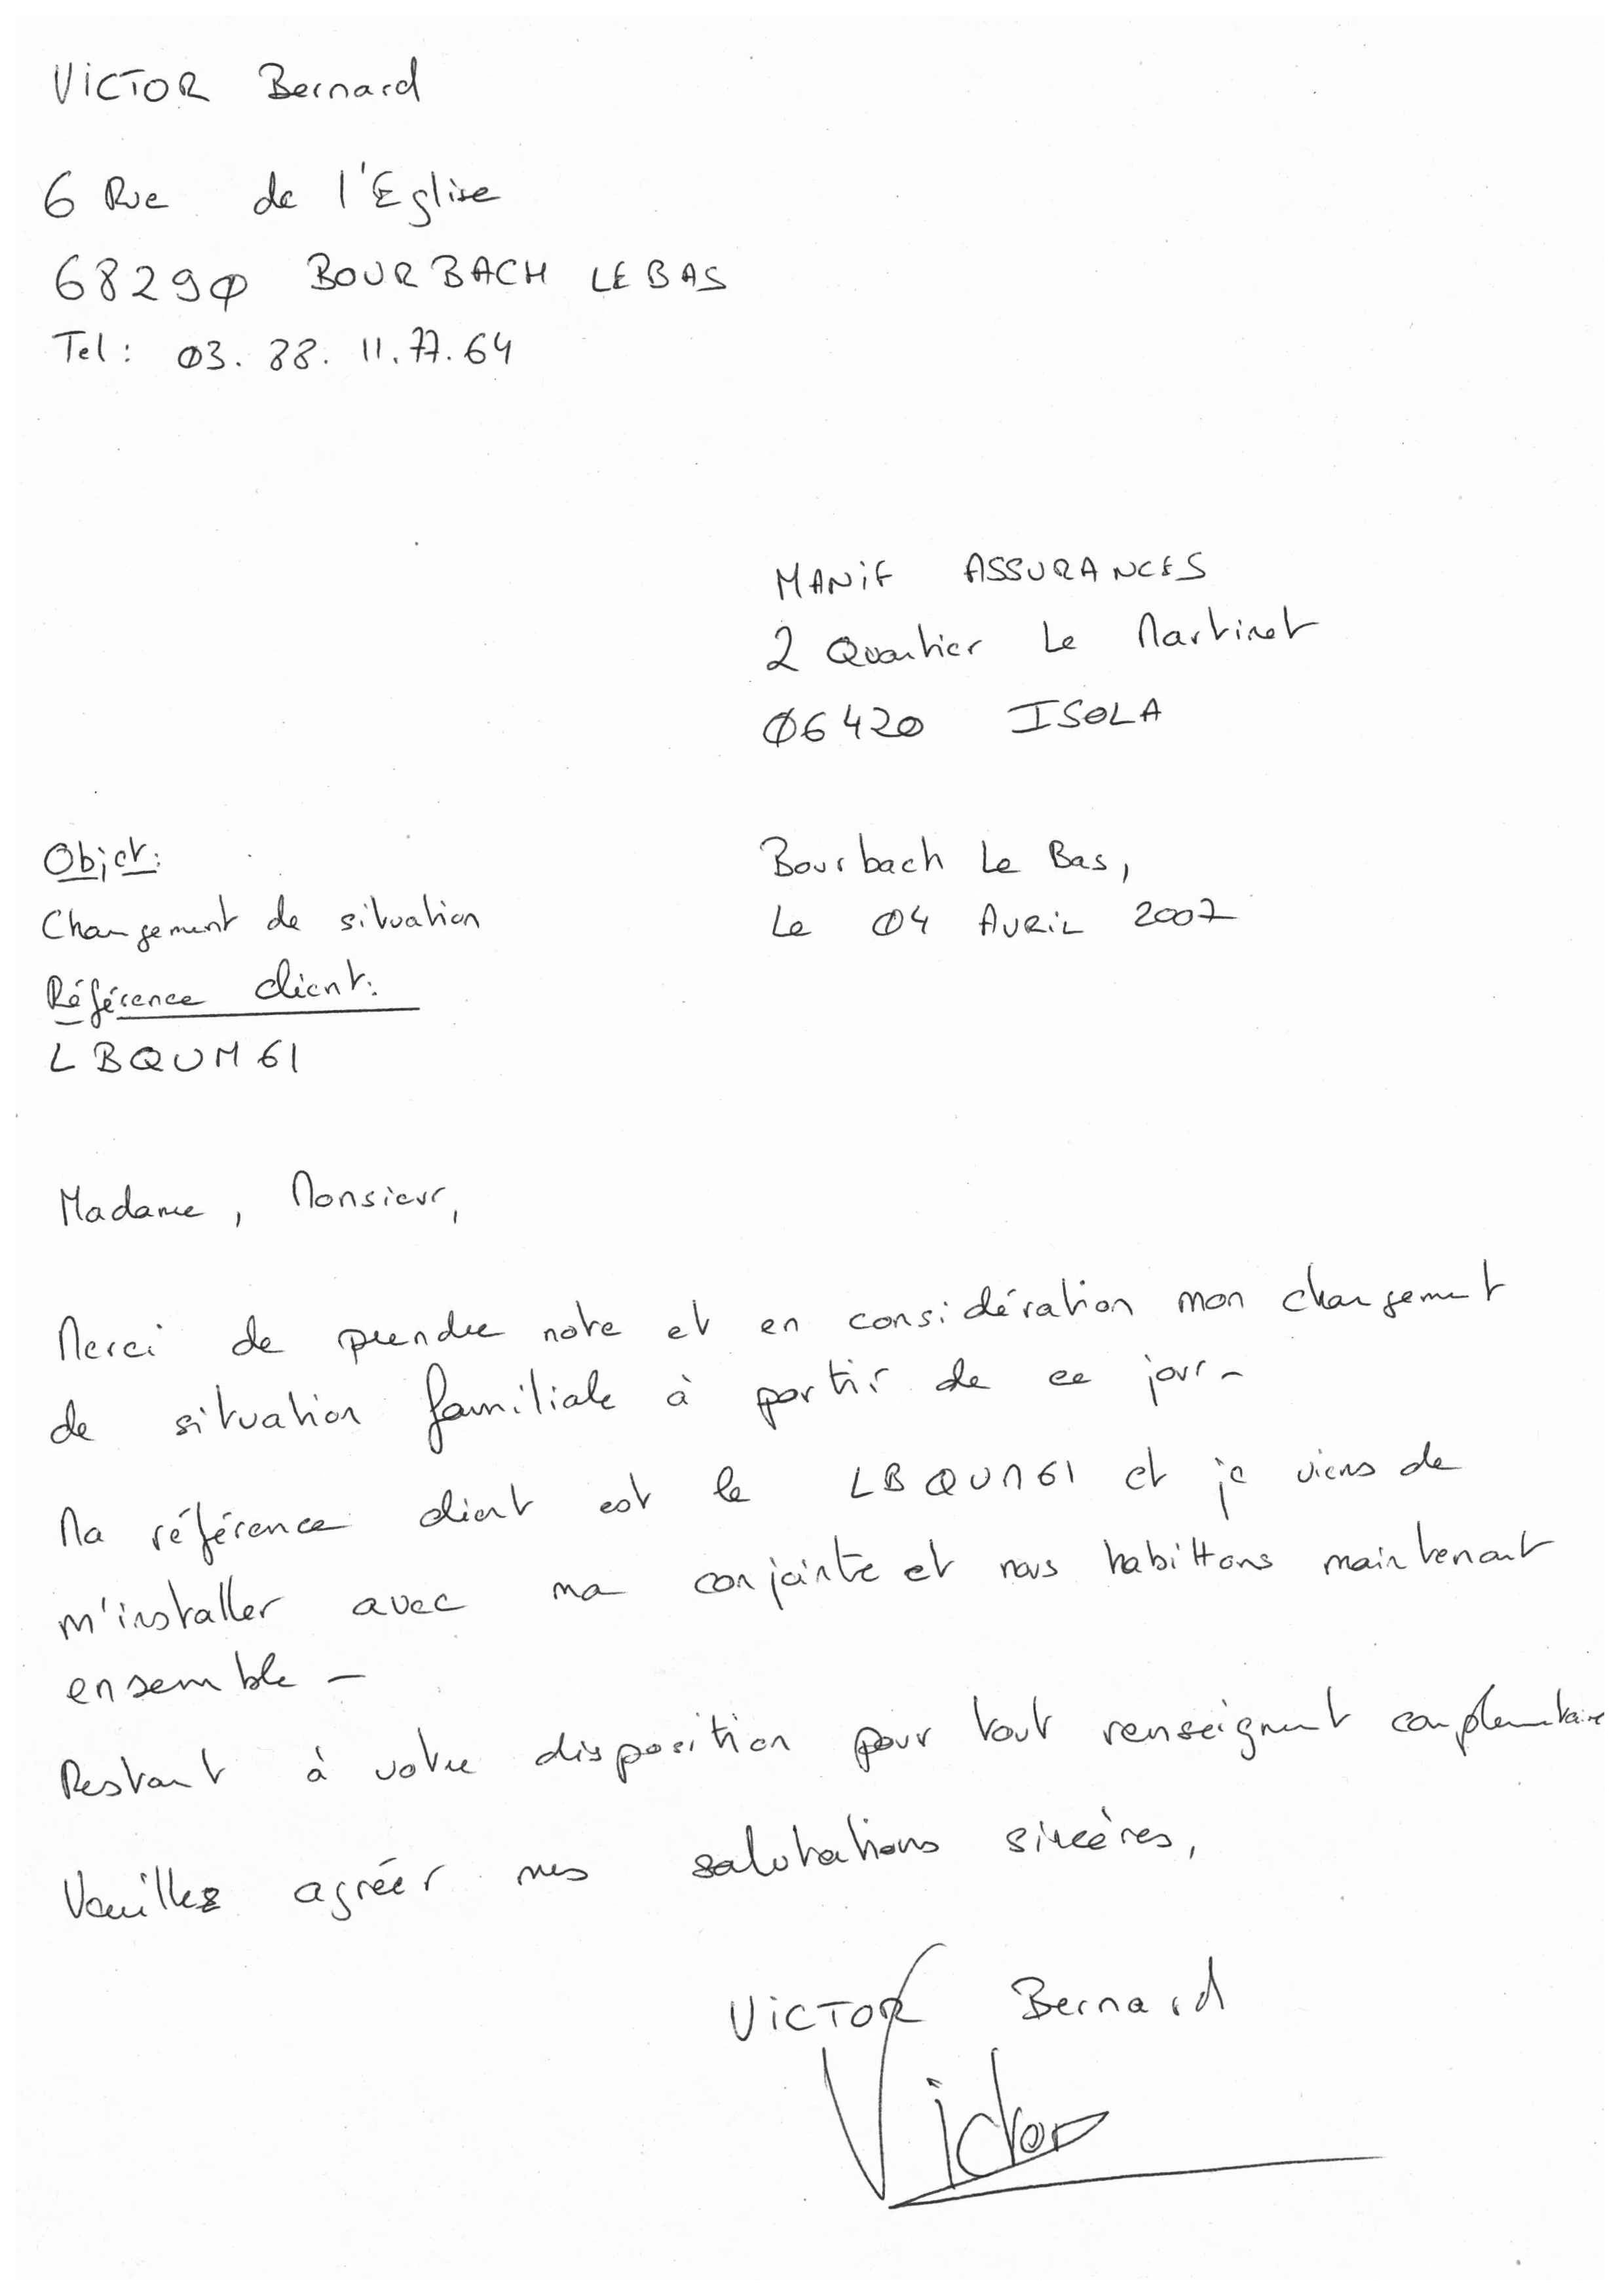 VICTOR Bernard
6 Rue de l'Eglise
68290 BOURBACH LE BAS
Tel : 03. 88. 11. 77. 64
MANIF ASSURANCES
2 Quartier Le Martinet
06420 ISOLA
Objet:
Changement de situation
Référence client:
LBQUM61
Bourbach Le Bas,
Le 04 AVRIL 2007
Madame, Monsieur,
Merci de prendre note et en considération mon changement
de situation familiale à partir de ce jour -
Ma référence client est le LBQUM61 et je viens de
m'installer avec ma conjointe et nous habittons maintenant
ensemble -
Restant à votre disposition pour tout renseignent complementaire
Veuillez agréer mes salutations sincères,
VICTOR Bernard
Victor